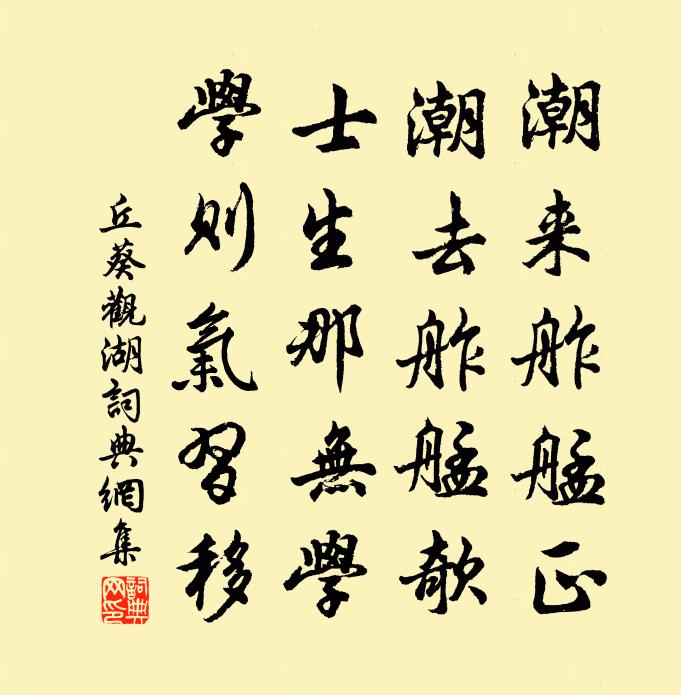 潮来舴艋正
潮去舴艋欹
士生那無學
學則氣習移
丘葵觀湖詞典網集
詞典